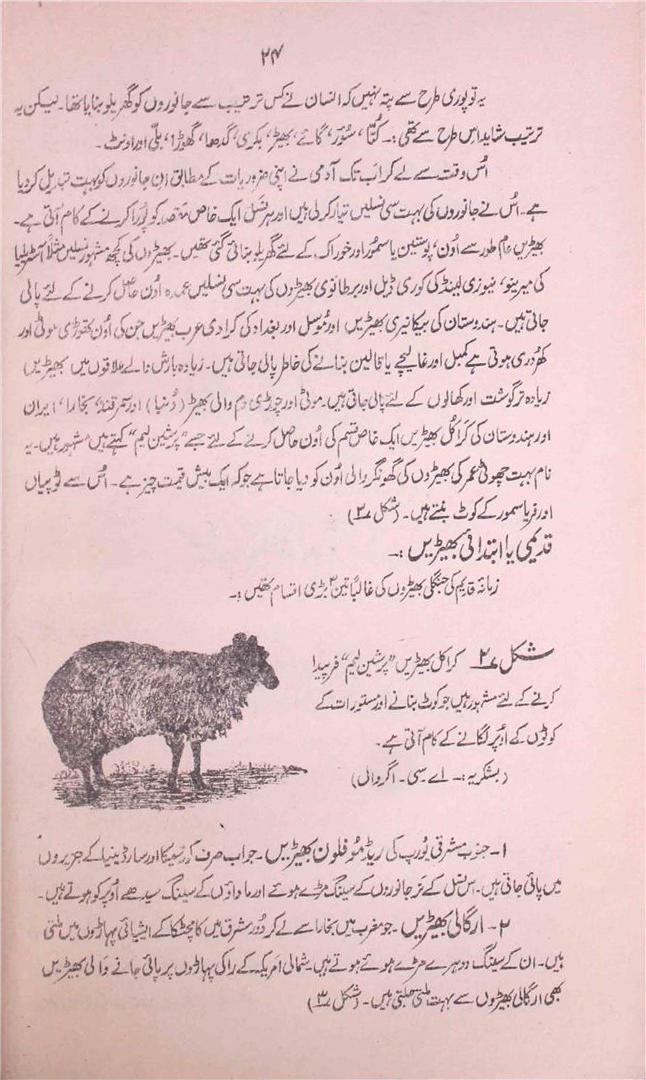 ۲۴
یہ تو پوری طرح سے پتہ نہیں کہ انسان نے کس ترتیب سے جانوروں کو گھریلو بنایا تھا۔ لیکن یہ
ترتیب شاید اس طرح سے تھی:۔ کُتّا، سُوَر، گائے، بھیڑ، بکری، گدھا، گھوڑا، بلّی اور اونٹ۔
اُس وقت سے لے کر اب تک آدمی نے اپنی ضروریات کے مطابق ان جانوروں کو بہت تبدیل کر دیا
ہے۔ اس نے جانوروں کی بہت سی نسلیں تیار کر لی ہیں اور ہر نسل ایک خاص مقصد کو پورا کرنے کے کام آتی ہے۔
بھیڑیں عام طور سے اُون، پوستین یا سمور اور خوراک کے لئے گھریلو بنائی گئی تھیں۔ بھیڑوں کی کچھ مشہور نسلیں مثلاً آسٹریلیا
کی میرینو، نیوزی لینڈ کی کوری ڈیل اور برطانوی بھیڑوں کی بہت سی نسلیں عمدہ اُون حاصل کرنے کے لئے پالی
جاتی ہیں۔ ہندوستان کی بیکانیری بھیڑیں اور مُوسل اور بغداد کی کرادی عرب بھیڑیں جن کی اُون تھوڑی موٹی اور
کھُردری ہوتی ہے کمبل اور غالیچے یا قالین بنانے کی خاطر پالی جاتی ہیں۔ زیادہ بارش والے علاقوں میں بھیڑیں
زیادہ تر گوشت اور کھالوں کے لئے پالی جاتی ہیں۔ موٹی اور چوڑی دُم والی بھیڑ (دُنبا) اور سمرقند، بخارا، ایران
اور ہندوستان کی کراکُل بھیڑیں ایک خاص قسم کی اُون حاصل کرنے کے لئے جسے "پرشین لیم" کہتے ہیں مشہور ہیں۔ یہ
نام بہت چھوٹی عمر کی بھیڑوں کی گھونگر والی اُون کو دیا جاتا ہے جو کہ ایک بیش قیمت چیز ہے۔ اُس سے ٹوپیاں
اور فر یا سمور کے کوٹ بنتے ہیں۔ (شکل ۲)
قدیمی یا ابتدائی بھیڑیں :۔
زمانہ قدیم کی جنگلی بھیڑوں کی غالباً تین بڑی اقسام تھیں :۔
شکل ۲ کراکل بھیڑیں "پرشین لیم" فر پیدا
کرنے کے لئے مشہور ہیں جو کوٹ بنانے اور مستورات کے
کوٹوں کے اُوپر لگانے کے کام آتی ہے۔
(بشکریہ :۔ اے سی۔ اگروالی)
۱۔ جنوب مشرقی یُورپ کی ریڈ موفلون بھیڑیں۔ جو اب صرف کورسیکا اور سارڈینیا کے جزیروں
میں پائی جاتی ہیں۔ اس نسل کے نر جانوروں کے سینگ مڑے ہوئے اور ماداؤں کے سینگ سیدھے اُوپر کو ہوتے ہیں۔
۲۔ ارگالی بھیڑیں۔ جو مغرب میں بخارا سے لے کر دُور مشرق میں کامچٹکا کے ایشیائی پہاڑوں میں ملتی
ہیں۔ ان کے سینگ دوہرے مڑے ہوئے ہوتے ہیں۔ شمالی امریکہ کے راکی پہاڑوں پر پائی جانے والی بھیڑیں
بھی ارگالی بھیڑوں سے بہت ملتی جلتی ہیں۔ (شکل ۳)